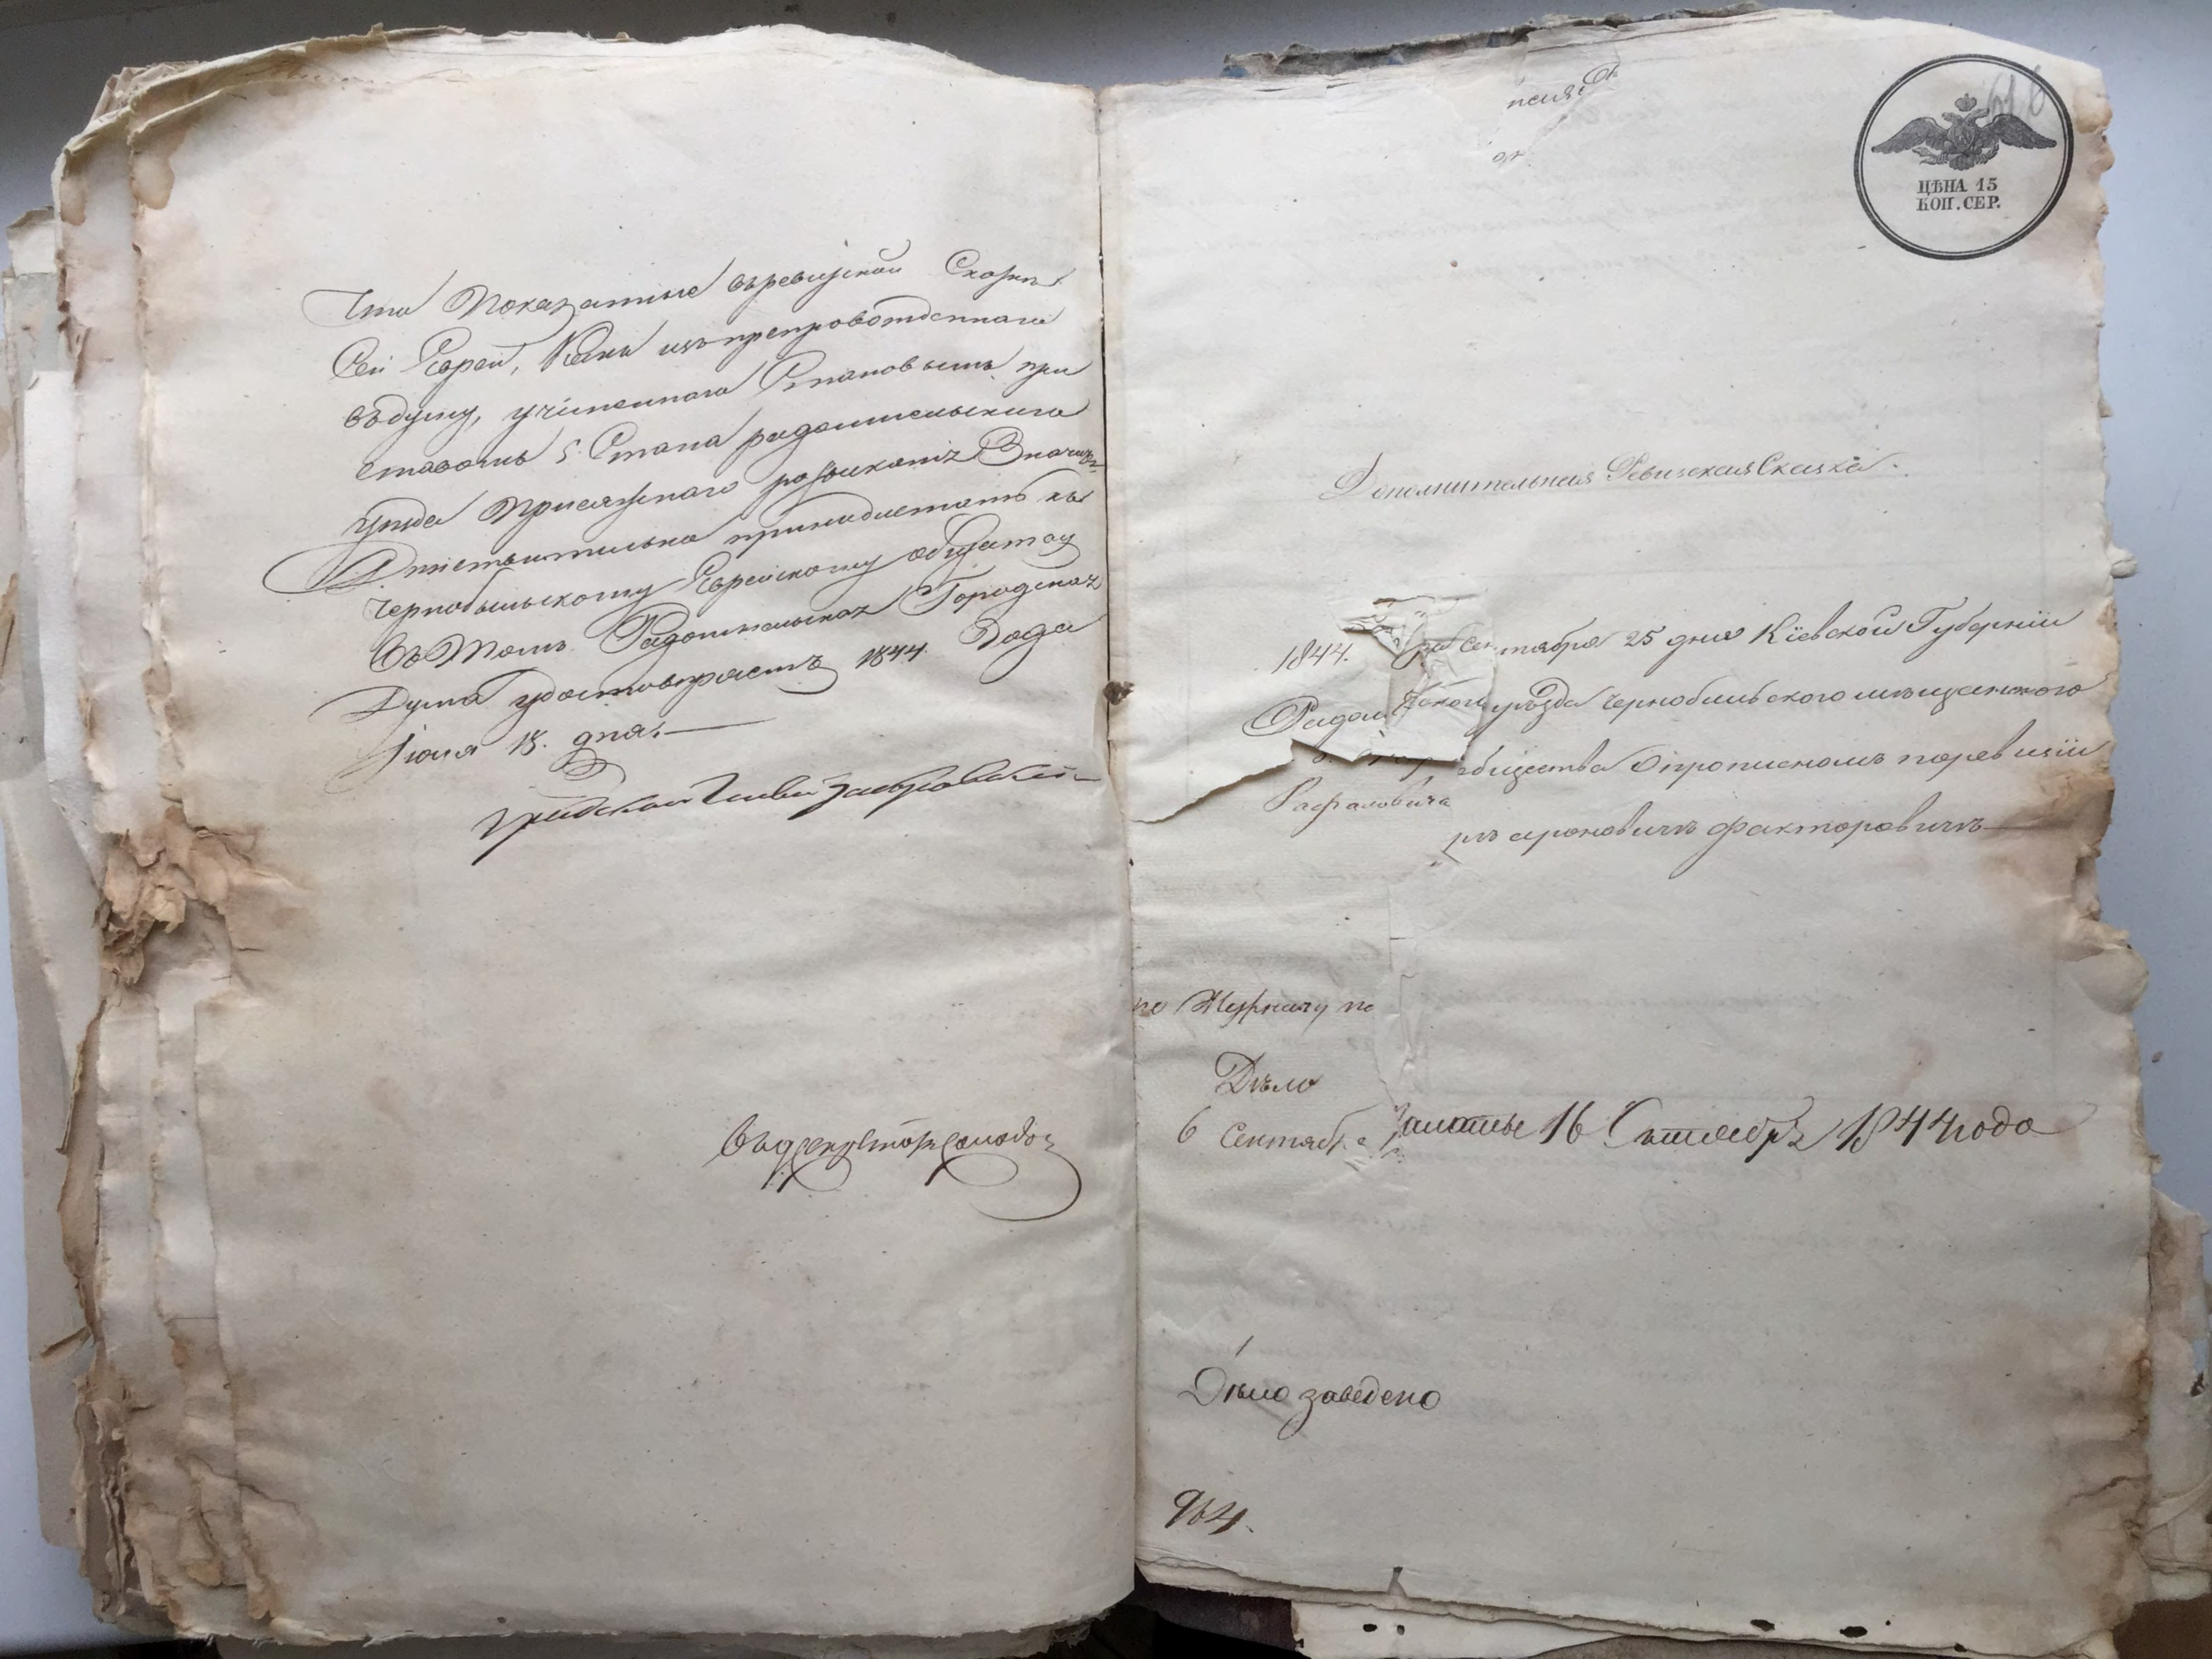 Что Показанные въревизской Сказке
Сей Еврей, Какъ изъ препровожденнаго
въдуму, учиненнаго Становымъ при
ставомъ 5. Стана радомысльскаго
уезда Присяжнаго розыска Значит
Действительно принадлежатъ къ
Чернобыльскому Еврейскому обществу
Въ Томъ Радомысльская Городская
Дума удостоверяетъ 1844. Года
Іюля 18. дня.
Градской Глава
ЦѢНА 15
КОП. СЕР.
Дополнительная Ревизская Сказка.
1844. года Сентября 25 дня Кіевской Губерніи
Радомысльского уезда Чернобыльского мещанского
общества опрописномъ поревизіи
Рафаловича
ароновичъ факторовичъ
по Журналу по
Дѣло
6 Сентября
16 Сентября 1844 года
Дѣло заведено
984.